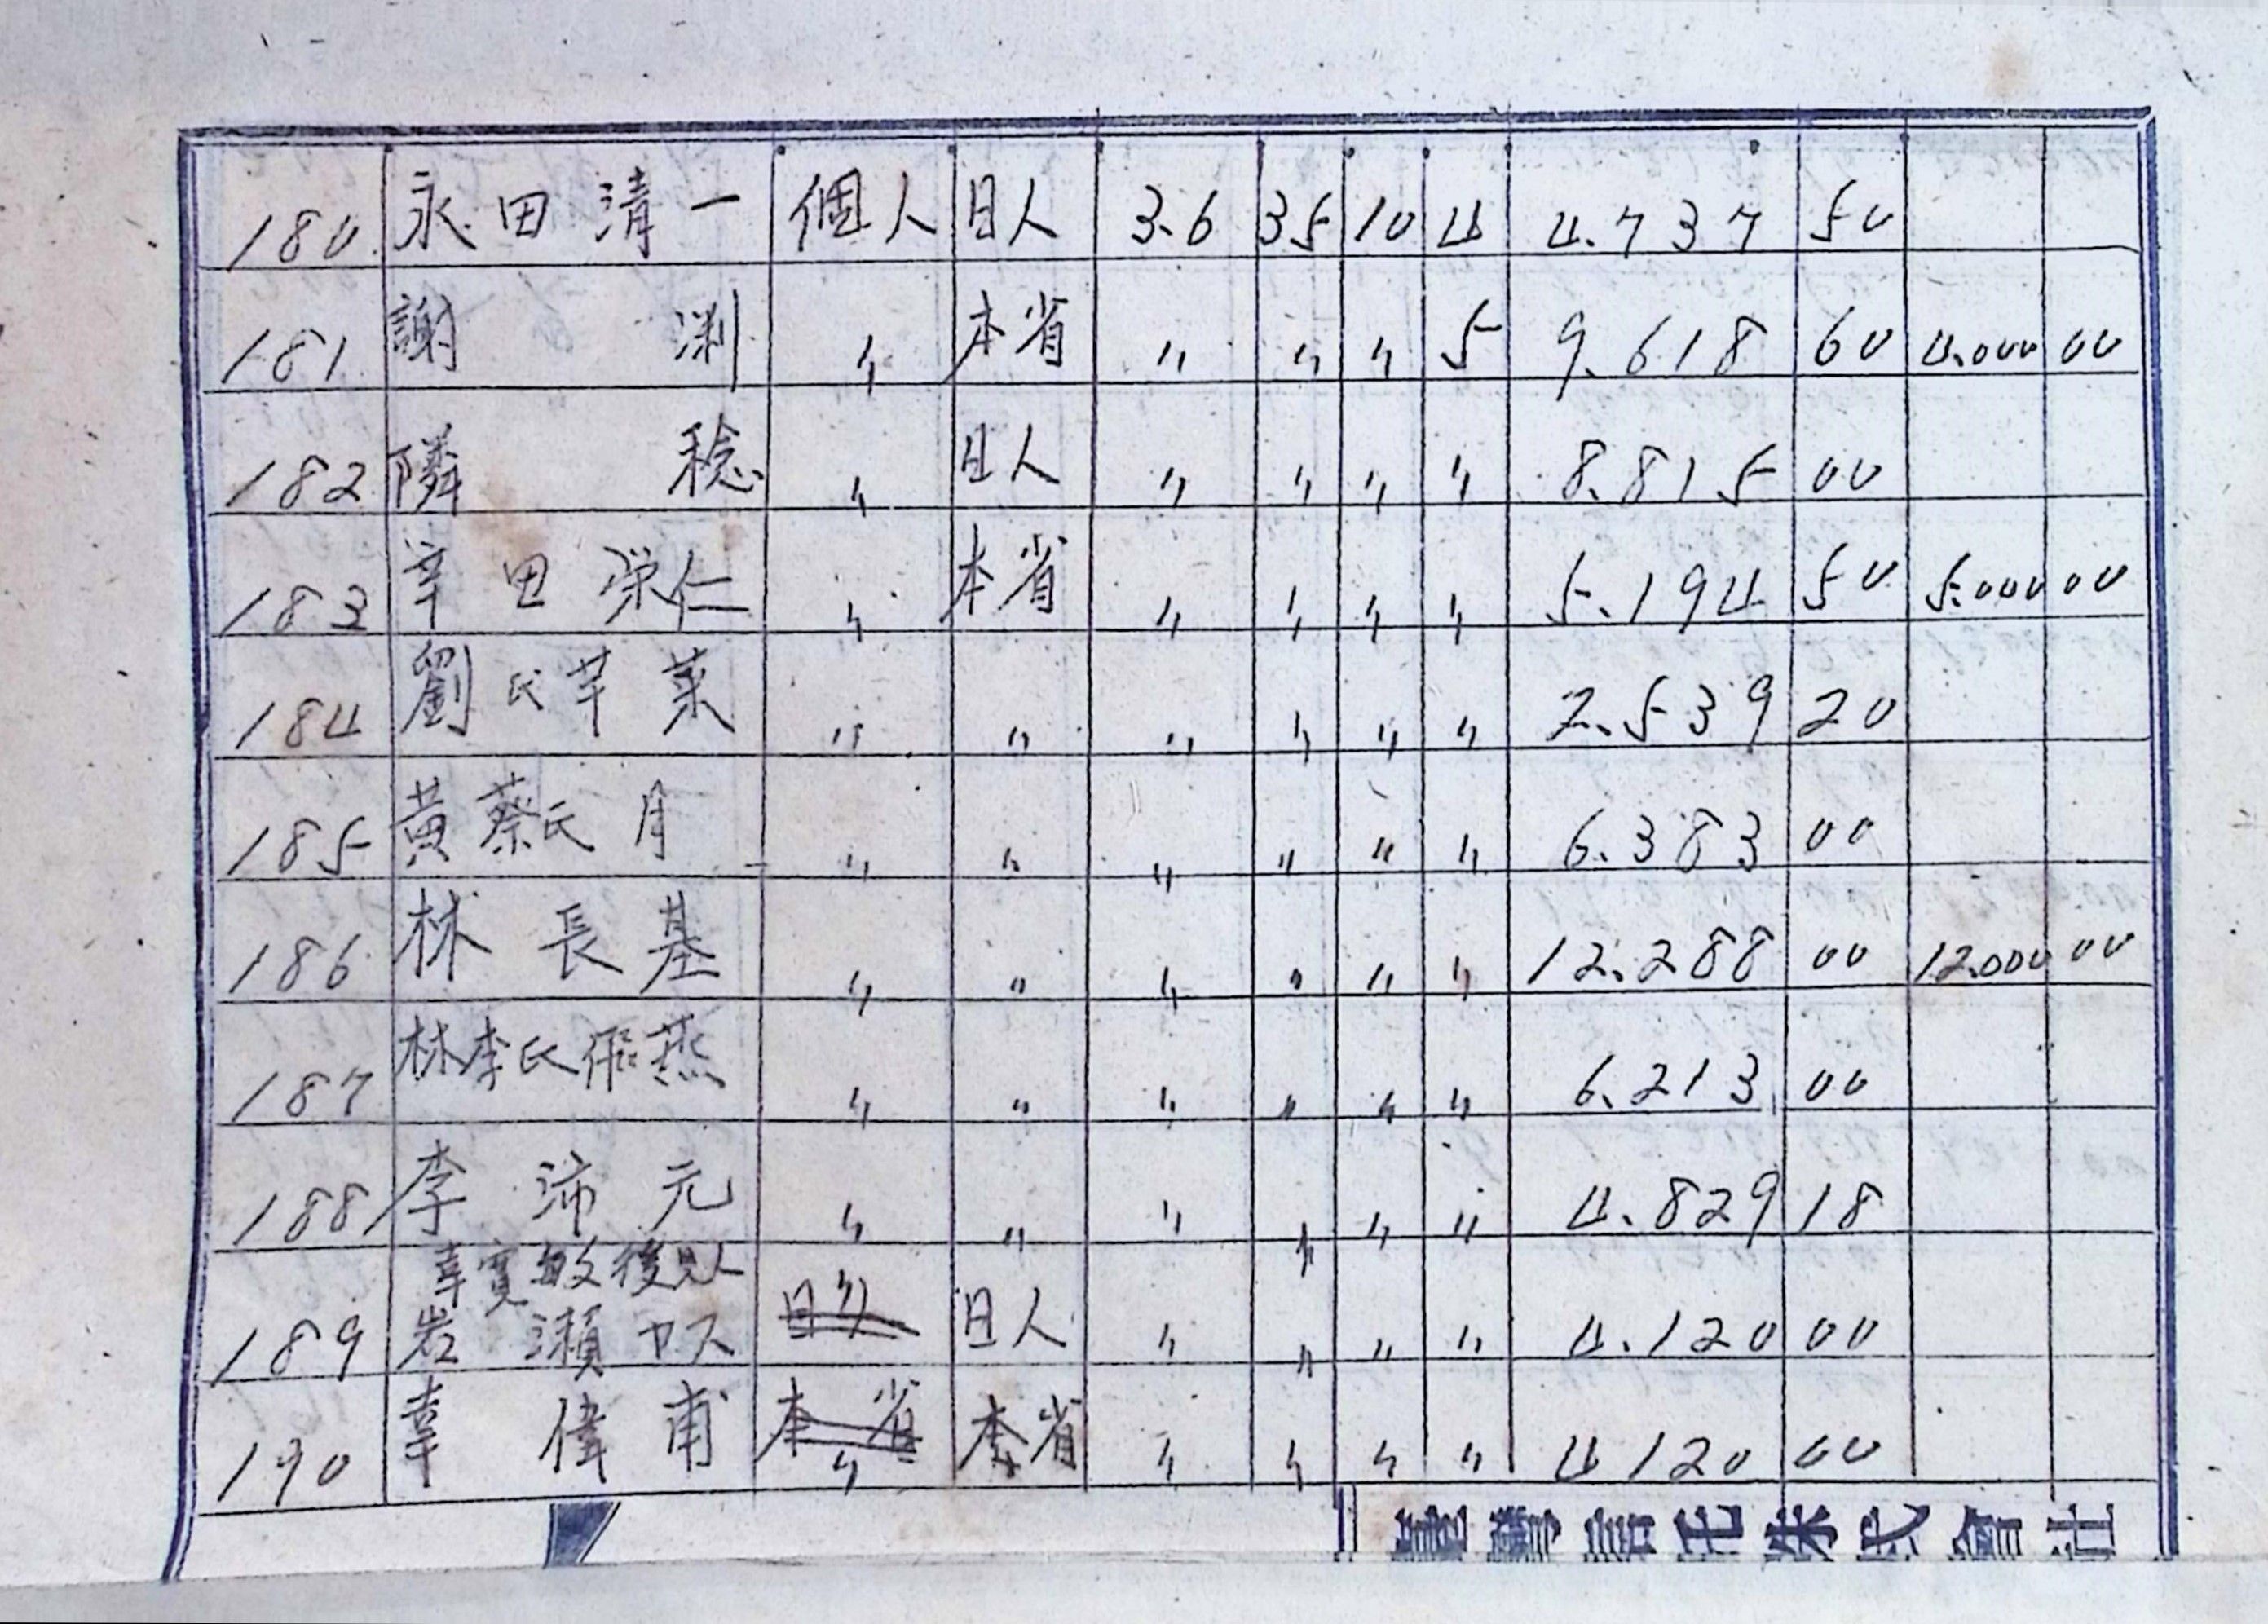 180 永田清一 個人 日人 3.6 35 10 4 4.737 50
181 謝 渕 〃 本省 〃 〃 〃 5 9.618 60 4.000 00
182 隣 稔 〃 日人 〃 〃 〃 〃 8.815 00
183 幸田栄仁 〃 本省 〃 〃 〃 〃 5.194 50 5.000 00
184 劉氏芊菜 〃 〃 〃 〃 〃 〃 2.539 20
185 黄蔡氏月 〃 〃 〃 〃 〃 〃 6.383 00
186 林長基 〃 〃 〃 〃 〃 〃 12.288 00 12.000 00
187 林李氏飛燕 〃 〃 〃 〃 〃 〃 6.213 00
188 李沛元 〃 〃 〃 〃 〃 〃 4.829 18
辜寬敏後見人
189 岩瀬ヤス 日人 〃 日人 〃 〃 〃 〃 4.120 00
190 辜偉甫 本省 〃 本省 〃 〃 〃 〃 4120 00
臺灣信託株式會社